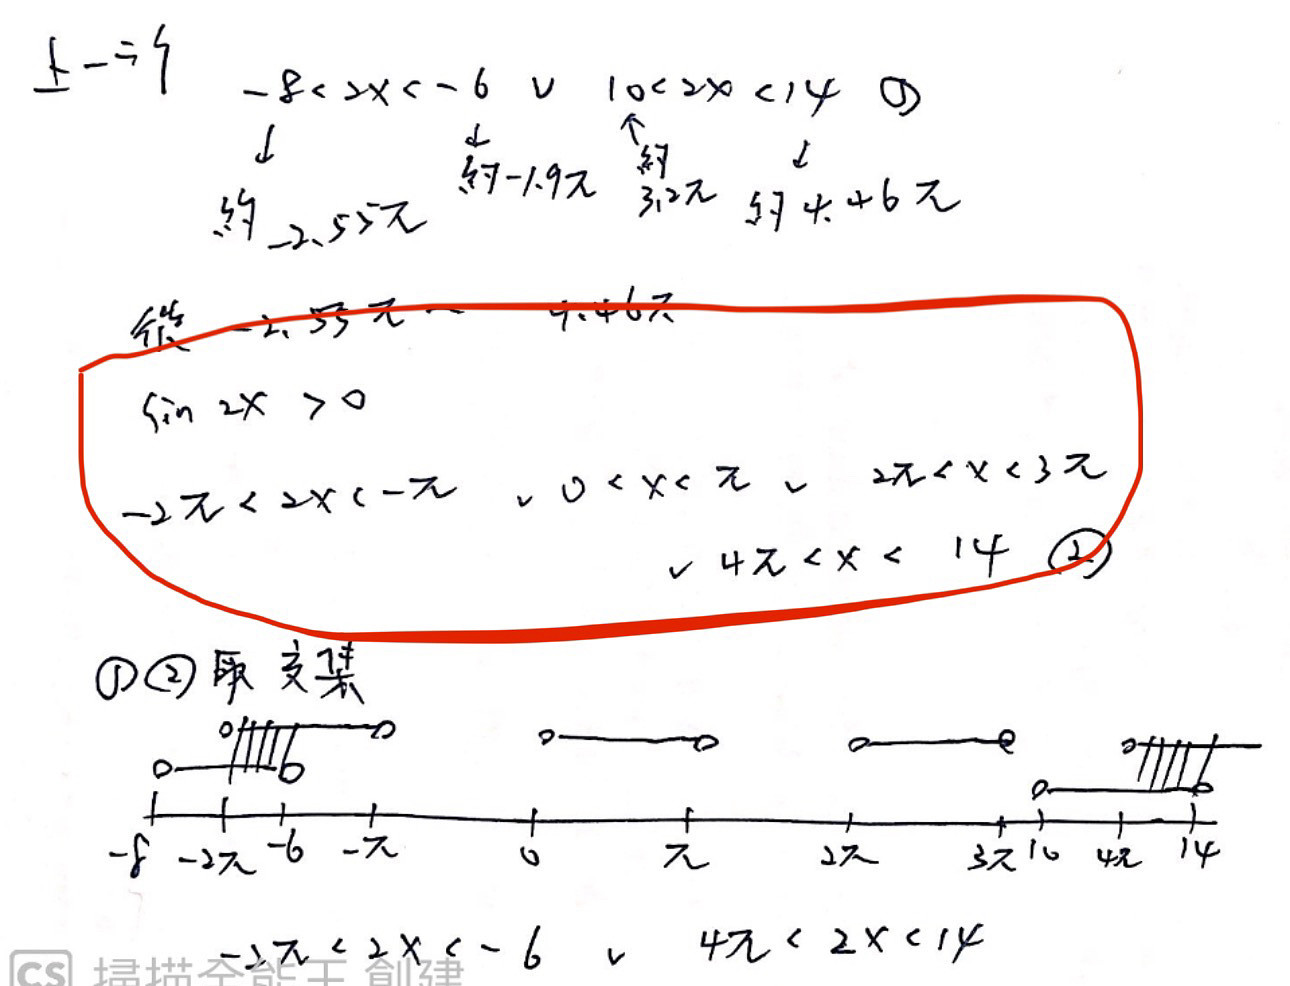 上一引
-8<2x<-6 ∨ 10<2x<14 ①
↓ ↓ ↑ ↓
約-2.55π 約-1.9π 約3.2π 約4.46π
從 -2.55π ~ 4.46π
sin 2x > 0
-2π < 2x < -π ∨ 0 < x < π ∨ 2π < x < 3π
∨ 4π < x < 14 ②
①② 取交集
-8 -2π -6 -π 0 π 2π 3π 10 4π 14
-2π < 2x < -6 ∨ 4π < 2x < 14
CS 掃描全能王 創建